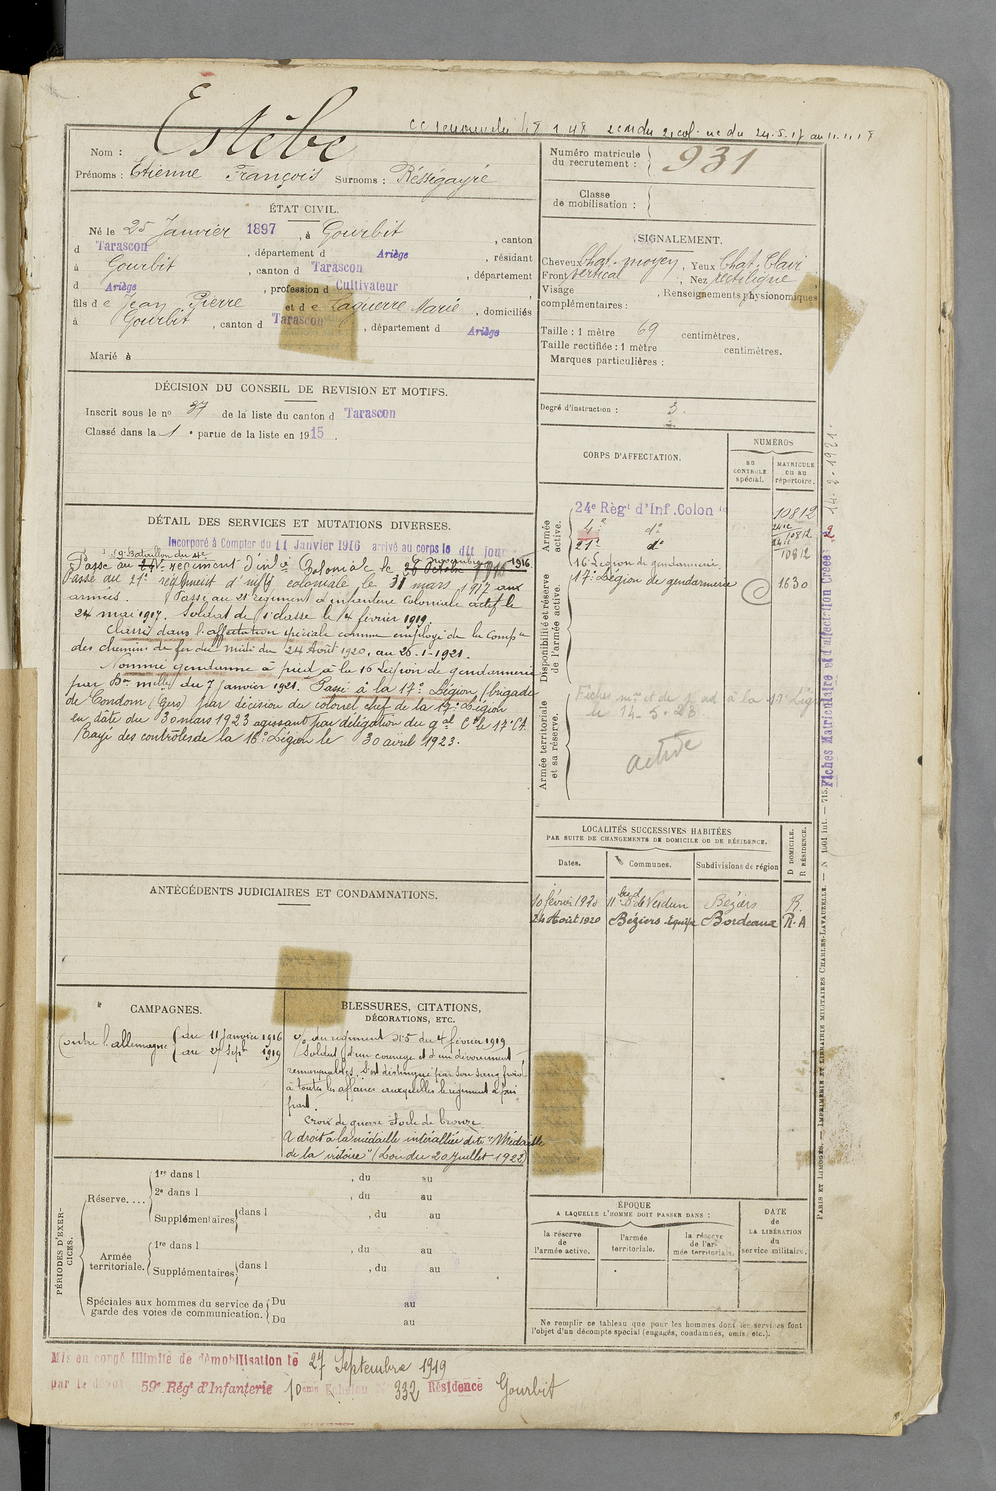 Estèbe
Nom :
Prénoms : Etienne François Surnoms : Rességayré
Numéro matricule
du recrutement : 931
Classe
de mobilisation :
ÉTAT CIVIL.
Né le 25 Janvier 1897, à Gourbit, canton
d Tarascon, département d Ariège, résidant
à Gourbit, canton d Tarascon, département
d Ariège, profession d Cultivateur,
fils de Jean Pierre et de Laguerre Marie, domiciliés
à Gourbit, canton d Tarascon, département d Ariège
Marié à
SIGNALEMENT.
Cheveux Chat. moyen, Yeux Chat. Clair
Front vertical, Nez rectiligne
Visage, Renseignements physionomiques
complémentaires :
Taille : 1 mètre 69 centimètres.
Taille rectifiée : 1 mètre centimètres.
Marques particulières :
DÉCISION DU CONSEIL DE REVISION ET MOTIFS.
Inscrit sous le no 37 de la liste du canton d Tarascon
Classé dans la 1e partie de la liste en 1915.
Degré d'instruction : 3.
DÉTAIL DES SERVICES ET MUTATIONS DIVERSES.
Incorporé à Compter du 11 Janvier 1916 arrivé au corps le dit jour
Passé au régiment d'infie Coloniale le 1916
Passé au 21e régiment d'infie coloniale le 31 mars 1917 aux
armées. Passé au 21e régiment d'infanterie Coloniale actif le
24 mai 1917. Soldat de 1e classe le 1er février 1919.
Classé dans l'affectation spéciale comme employé de la Compie
des chemins de fer du Midi du 24 Août 1920, au 26-1-1921.
Nommé gendarme à pied à la 16 Légion de gendarmerie
par Don mlle du 7 janvier 1921. Passé à la 17e Légion (brigade
de Condom (Gers) par décision du colonel chef de la 17e Légion
en date du 30 mars 1923 agissant par délégation du gal Ct le 17e CA.
Rayé des contrôles de la 16e Légion le 30 avril 1923.
CORPS D'AFFECTATION.
NUMÉROS
AU
CONTROLE
spécial.
MATRICULE
OU AU
répertoire.
Armée
active.
24e Régt d'Inf. Colon le 10812
4e do 10812
21e do 10812
Disponibilité et réserve
de l'armée active.
16 Légion de gendarmerie
17e Légion de gendarmerie 1630
Armée territoriale
et sa réserve.
le 14-5-23
active
LOCALITÉS SUCCESSIVES HABITÉES
PAR SUITE DE CHANGEMENTS DE DOMICILE OU DE RÉSIDENCE.
Dates. Communes. Subdivisions de région
D DOMICILE.
R RÉSIDENCE.
10 février 1920 11 bd de Verdun Béziers R.
24 Août 1920 Béziers équipe Bordeaux R.A
ANTÉCÉDENTS JUDICIAIRES ET CONDAMNATIONS.
CAMPAGNES.
Contre l'allemagne du 11 Janvier 1916
au 27 Sepre 1919
BLESSURES, CITATIONS,
DÉCORATIONS, ETC.
O/ du régiment No 5 du 4 février 1919
Soldat d'un courage et d'un dévouement
remarquables, s'est distingué par son sang froid
à toutes les affaires auxquelles le régiment a pris
part.
Croix de guerre étoile de bronze
A droit à la médaille interalliée dite "Médaille
de la victoire" (Loi du 20 juillet 1922)
PÉRIODES D'EXERCICES.
Réserve....
1re dans l, du au
2e dans l, du au
Supplémentaires dans l, du au
Armée
territoriale.
1re dans l, du au
Supplémentaires dans l, du au
Spéciales aux hommes du service de
garde des voies de communication.
Du au
Du au
ÉPOQUE
A LAQUELLE L'HOMME DOIT PASSER DANS :
la réserve
de
l'armée active.
l'armée
territoriale.
la réserve
de l'armée territoriale.
DATE
de
LA LIBÉRATION
du
service militaire.
Ne remplir ce tableau que pour les hommes dont les services font
l'objet d'un décompte spécial (engagés, condamnés, omis, etc.).
Mis en congé illimité de démobilisation le 27 Septembre 1919
par le dépôt 59e Régt d'Infanterie 10eme Echelon No 332 Résidence Gourbit
Fiches Matriculaire et d'affectation Créées 14-2-1921.
PARIS ET LIMOGES. — IMPRIMERIE ET LIBRAIRIE MILITAIRES CHARLES-LAVAUZELLE.